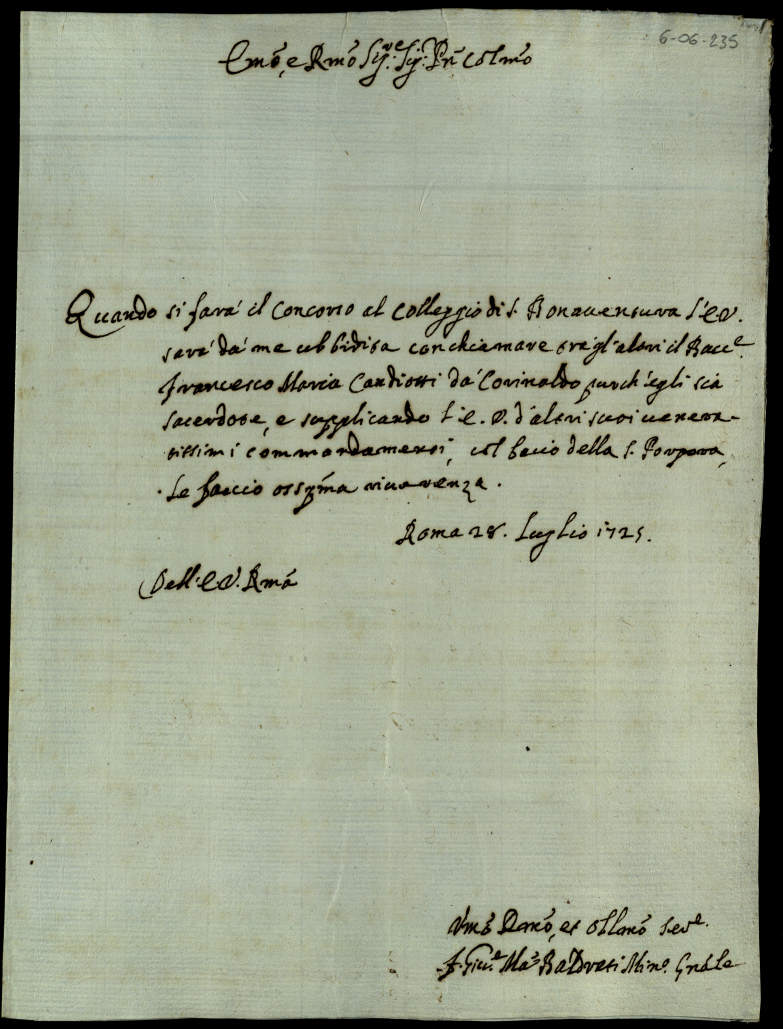 6-06-235
Emõ, e Rmõ Sig.re Sig. Pñ Colmõ
Quando si farà il Concorso al Colleggio di S. Bonaventura l'E.V.
sarà dà me ubbidita con chiamare tra gl'altri il Bacc.e
Francesco Maria Candiotti dà Corinaldo, purch'egli sia
sacerdote, e supplicando l'E.V. d'altri suoi venera-
tissimi commandamenti, col bacio della S. Porpora,
le faccio osseqma riverenza.
Roma 28. Luglio 1725.
Dell'E.V. Rmã
Vmõ Dmõ, et Obbmõ Serv.e
F. Giu.e Ma. Baldrati Min.o Gnãle